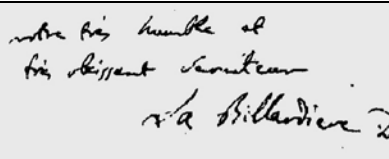 votre très humble et
très obéissant serviteur
La Billardiere